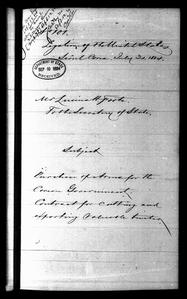 No 101.
Legation of the United States
Séoul Corea July 30. 1884.
DEPARTMENT OF STATE
SEP 10 1884
RECEIVED
Mr Lucius H. Foote
To the Secretary of State.
Subject
Purchase of Arms for the
Corean Government
Contract for Cutting and
exporting Valuable timber